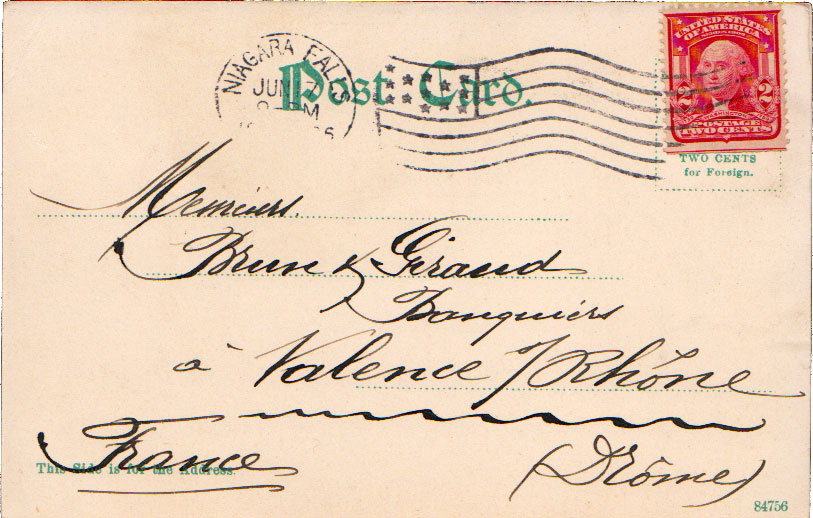 NIAGARA FALLS
JUN 17
Post Card.
UNITED STATES
OF AMERICA
2 2
POSTAGE
TWO CENTS
TWO CENTS
for Foreign.
Messieurs.
Brun & Giraud
Banquiers
à Valence s/Rhône
France
(Drôme)
This Side is for the Address.
84756